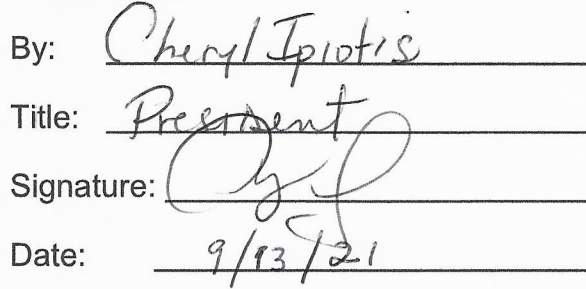 By: Cheryl Ipiotis
Title: President
Signature:
Date: 9/13/21